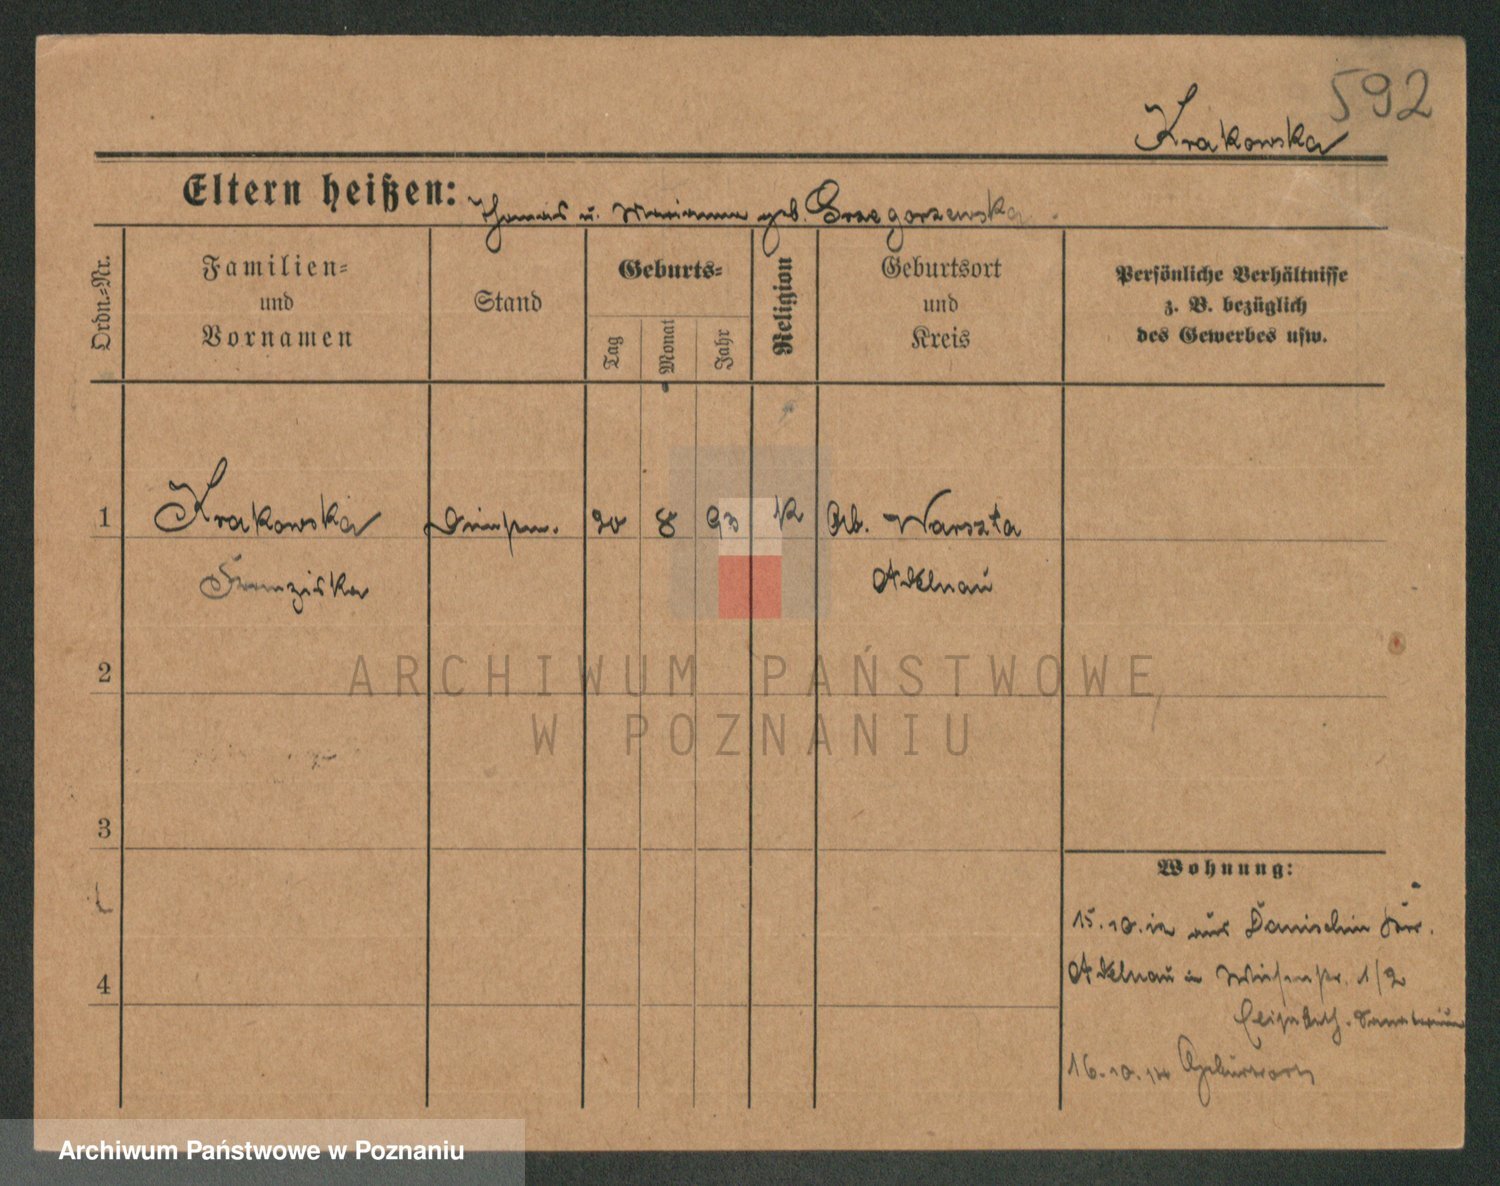 592
Krakowska
Eltern heißen: Thomas u. Marianna geb. Grzegorzewska.
Ordn.-Nr.
Familien-
und
Vornamen
Stand
Geburts-
Tag
Monat
Jahr
Religion
Geburtsort
und
Kreis
Persönliche Verhältnisse
z. B. bezüglich
des Gewerbes usw.
1 Krakowska 20 8 93 k Warszta
Franziska Adelnau
2
ARCHIWUM PAŃSTWOWE
W POZNANIU
3
Wohnung:
15.10.12 aus Danischin
4
Adelnau in Wiesenstr. 1/2
Elisabeth. Sanatorium
16.10.14 Geburtsort
Archiwum Państwowe w Poznaniu